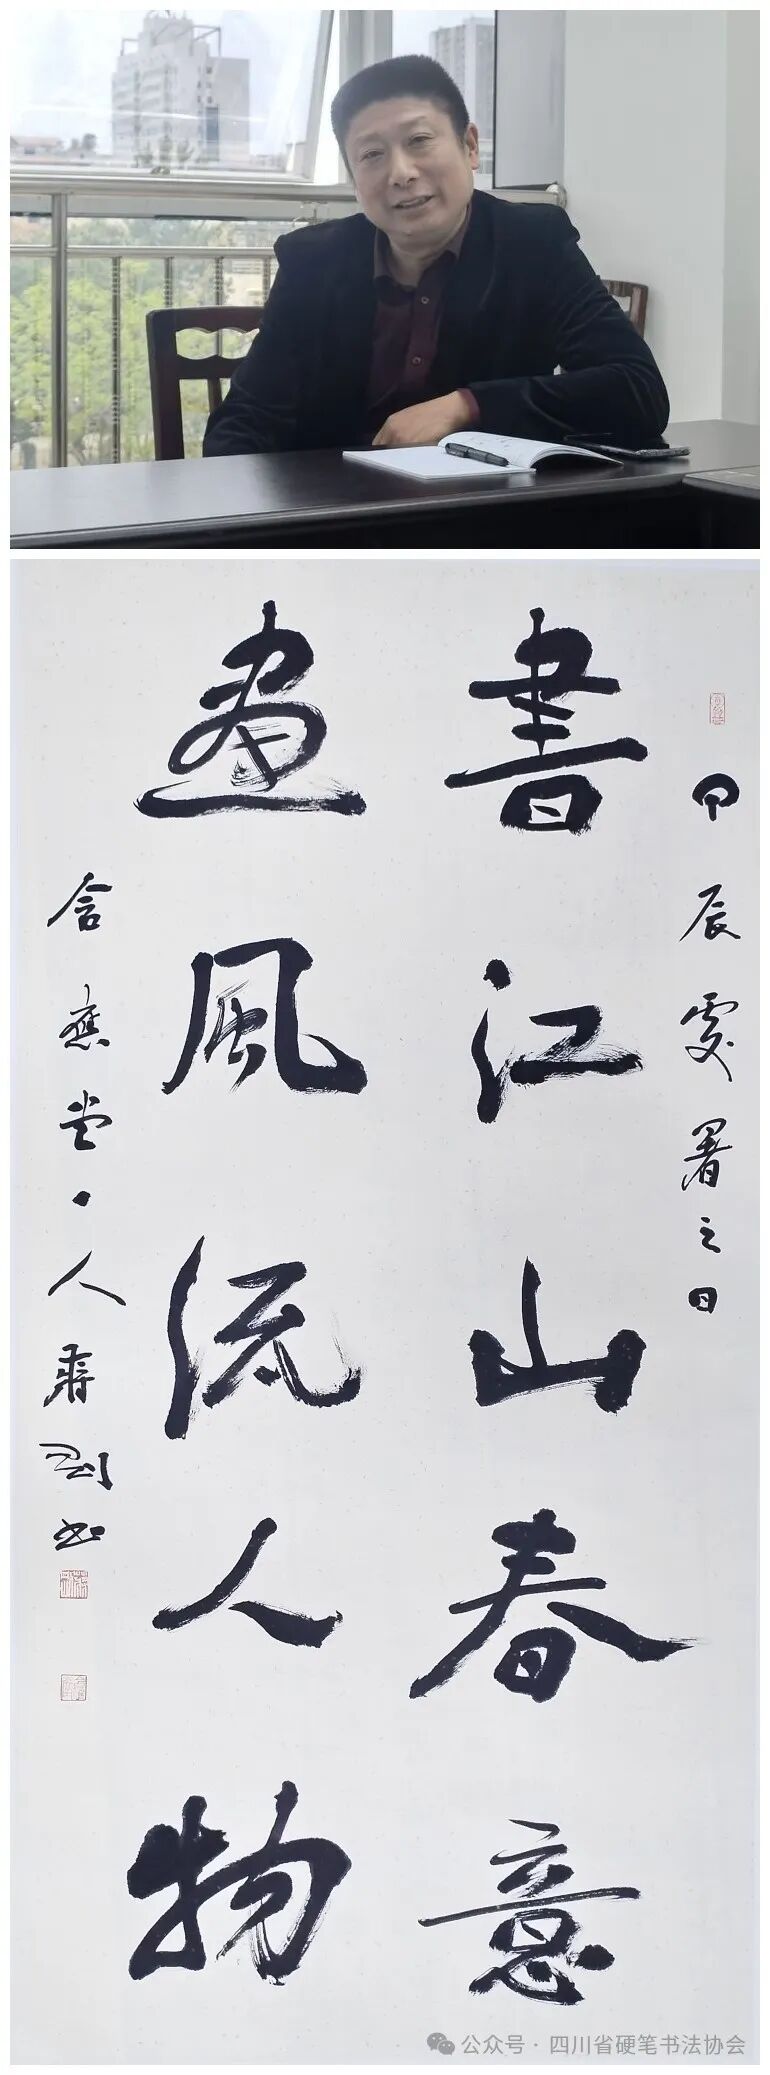 甲辰處暑之日
書江山春意
畫風流人物
含應堂主人蔣剛書
公众号·四川省硬笔书法协会